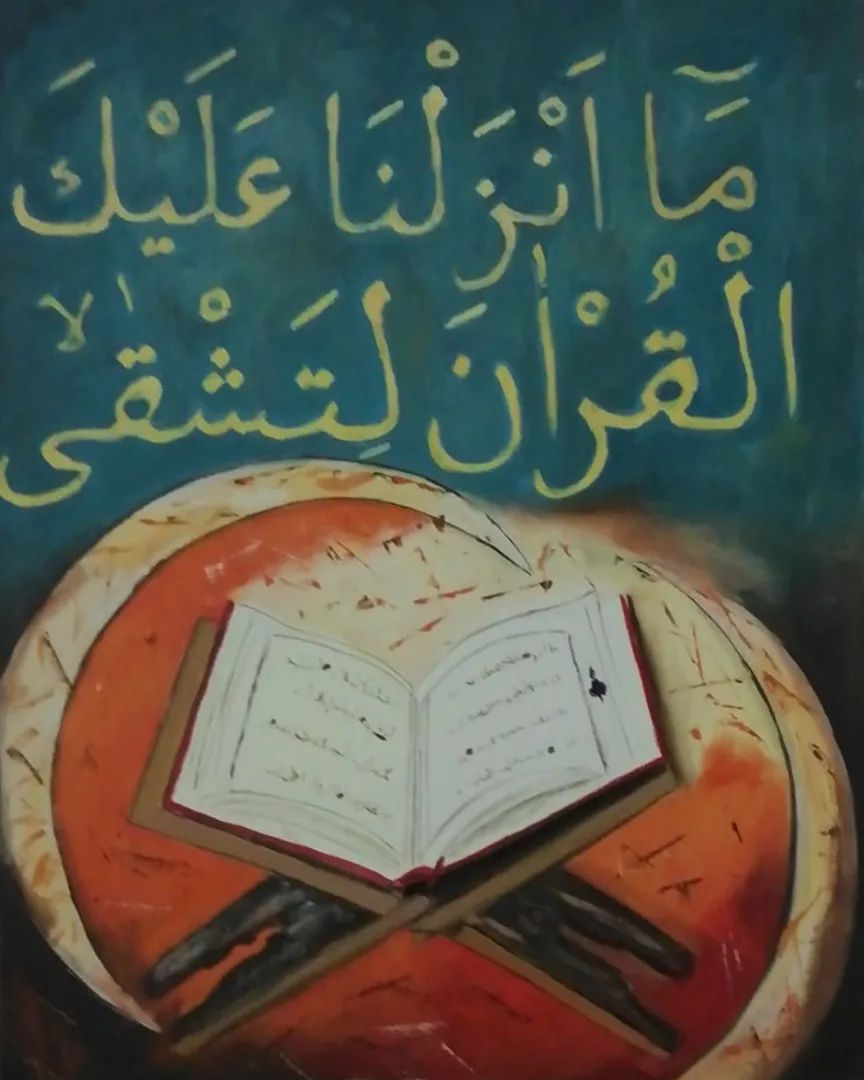 مَآ اَنْزَلْنَا عَلَيْكَ
الْقُرْاٰنَ لِتَشْقٰىۙ